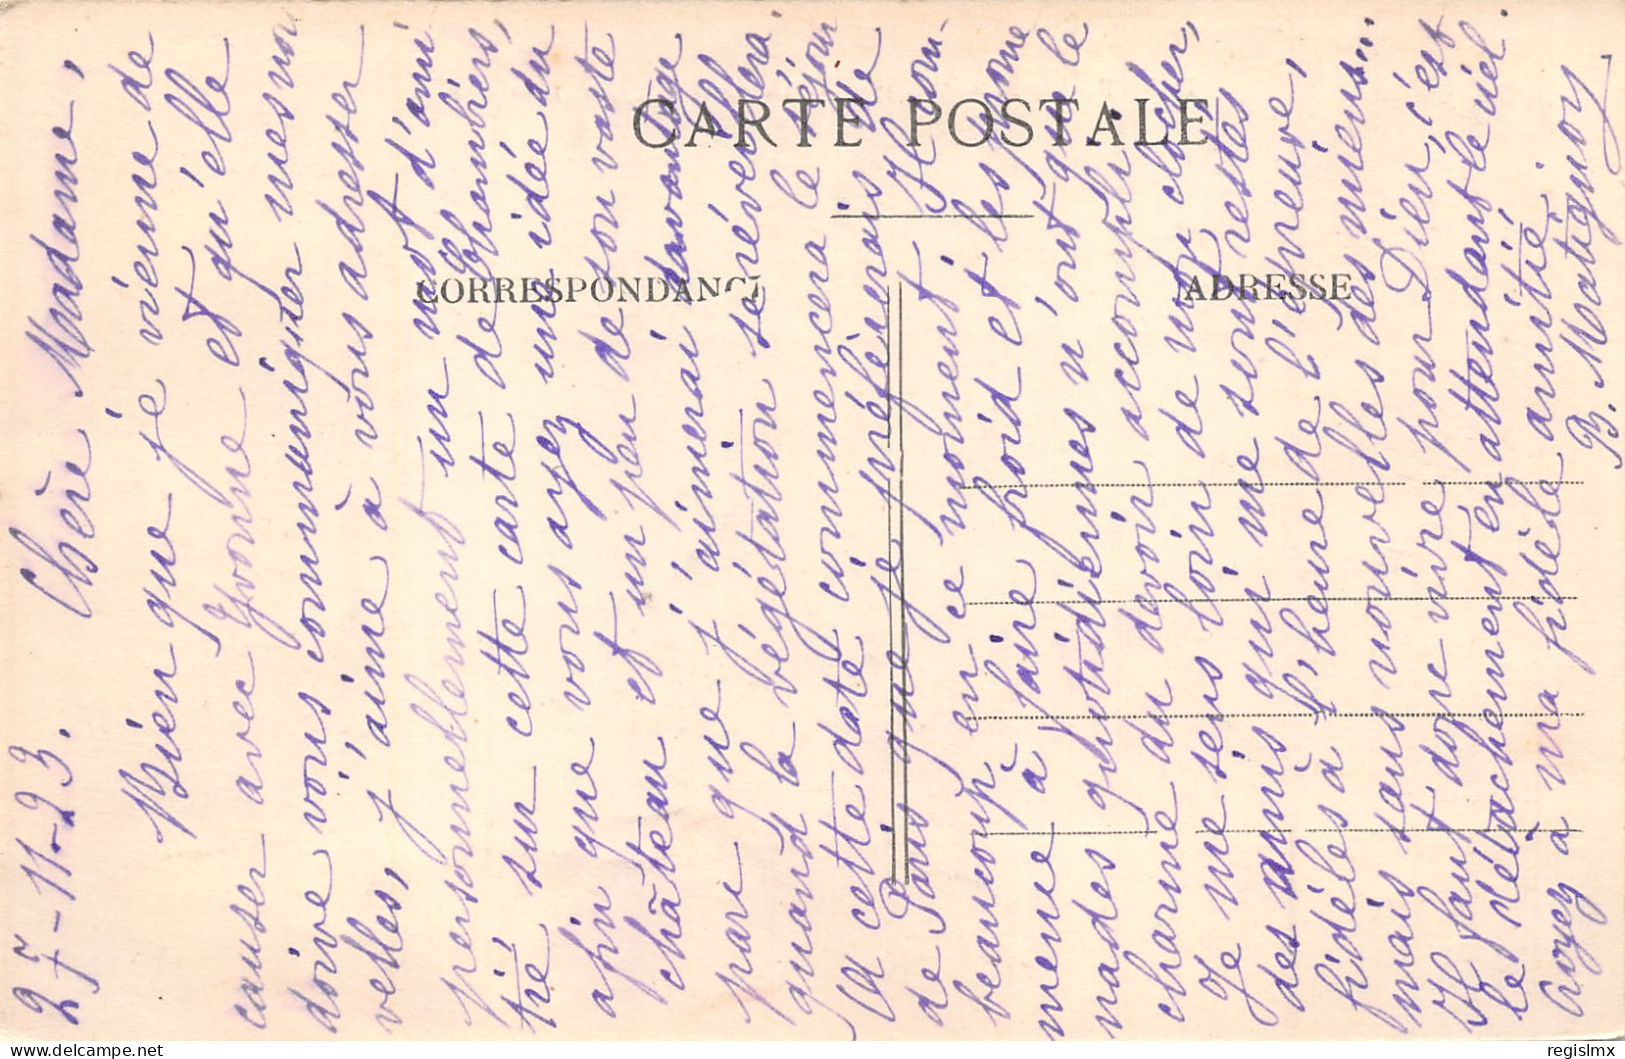 CARTE POSTALE
CORRESPONDANCE
ADRESSE
27-11-23. Chère Madame,
Bien que je vienne de
causer avec Yvonne et qu'elle
doive vous communiquer mes nou
velles, j'aime à vous adresser
personnellement un mot d'ami
tié sur cette carte de Chambiers,
afin que vous ayez une idée du
château et un peu de son vaste
parc que j'aimerai davantage
quand la végétation se réveillera
A cette date commencera le séjour
de Paris que je préférerais de
beaucoup en ce moment. Il com-
mence à faire froid et les prome
nades quotidiennes n'ont que le
charme du devoir accompli.
Je me sens loin de mon clocher,
des amis qui me sont restés
fidèles à l'heure de l'épreuve,
mais sans nouvelles des miens...
Il faut donc vivre pour Dieu, c'est
le détachement en attendant le ciel.
Croyez à ma fidèle amitié.
B. Matignon
regislmx